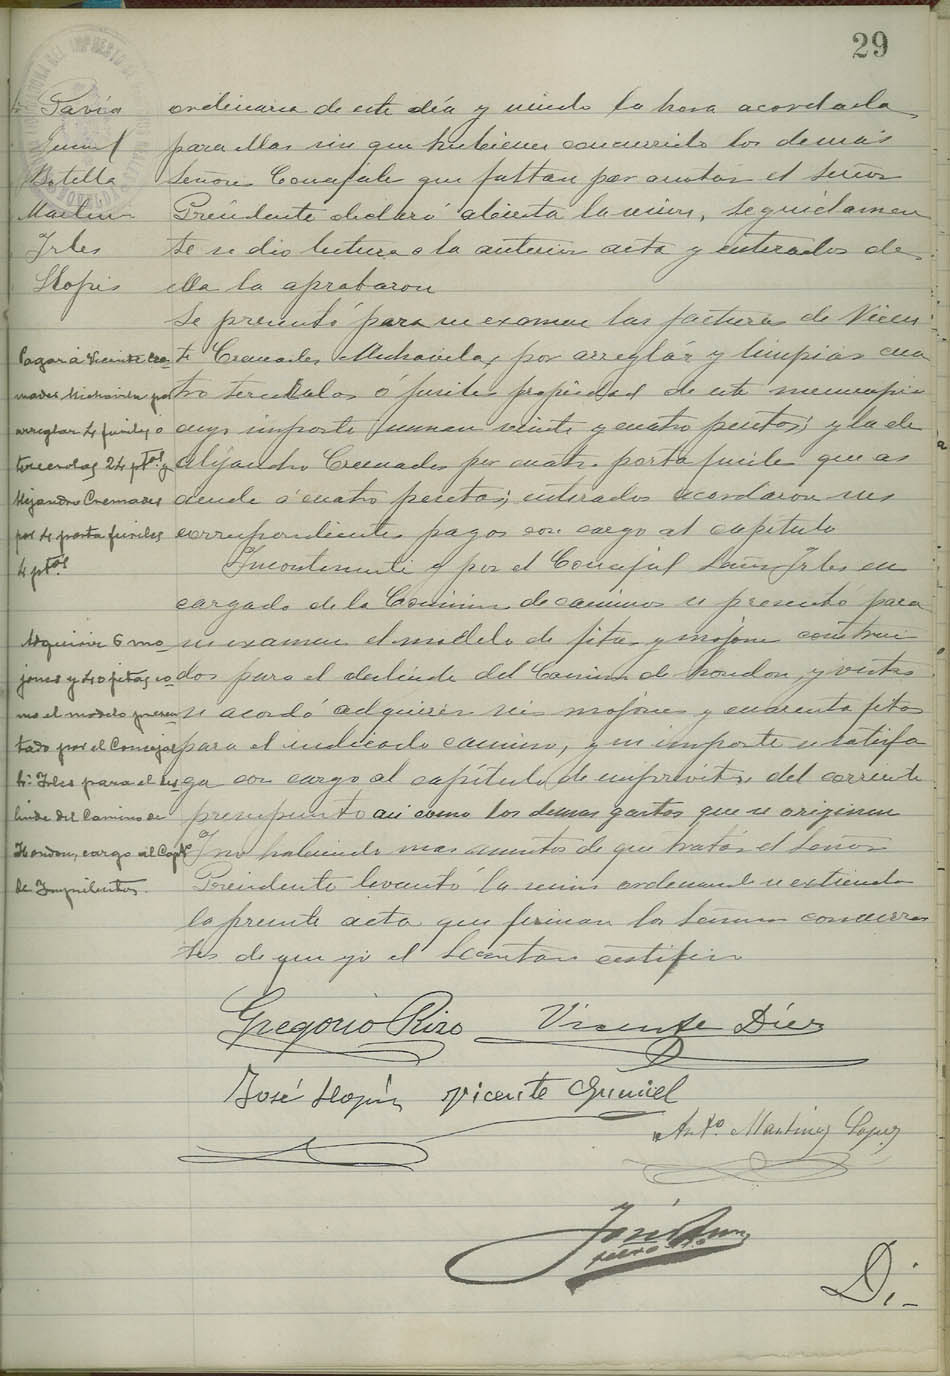 29
Pavía
Gumiel
Botella
Martinez
Irles
Llopis
ordinaria de este día y siendo la hora acordada
para ellas sin que hubieren concurrido los demás
Señores Concejales que faltan por anotar el señor
Presidente declaró abierta la sesion, seguidamen
te se dio lectura a la anterior acta y enterados de
ella la aprobaron
Se presentó para su examen las facturas de Vicen
te Cremades Michavila, por arreglar y limpiar cua
tro tercerolas ó fusiles propiedad de este municipio
cuyo importe suman veinte y cuatro pesetas; y la de
Alejandro Cremades por cuatro porta fusiles que as
ciende á cuatro pesetas; enterados acordaron sus
correspondientes pagos con cargo al capítulo
Pagar á Vicente Cre-
mades Michavila por
arreglar 4 fusiles o
tercerolas, 24 ptas y
Alejandro Cremades
por 4 porta fusiles
4 ptas
Incontinenti y por el Concejal Señor Irles en
cargado de la Comision de caminos se presentó para
su examen el modelo de fitas y mojones construi
dos para el deslinde del Camino de Hondon, y vistos
se acordó adquirir seis mojones y cuarenta fitas
para el indicado camino, y su importe se satisfa
ga con cargo al capítulo de imprevistos del corriente
presupuesto asi como los demas gastos que se originen
Adquirir 6 mo-
jones y 40 fitas, co-
mo el modelo presen
tado por el Concejal
Sr. Irles para el des-
linde del Camino de
Hondon, cargo al Capto
de Imprevistos.
Y no habiendo mas asuntos de que tratar el Señor
Presidente levantó la sesion ordenando se extienda
la presente acta que firman los Señores concurren
tes de que yo el Secretario certifico
Gregorio Rizo Vicente Díez
José Llopis Vicente Gumiel
Anto Martinez Lopez
José
Di-